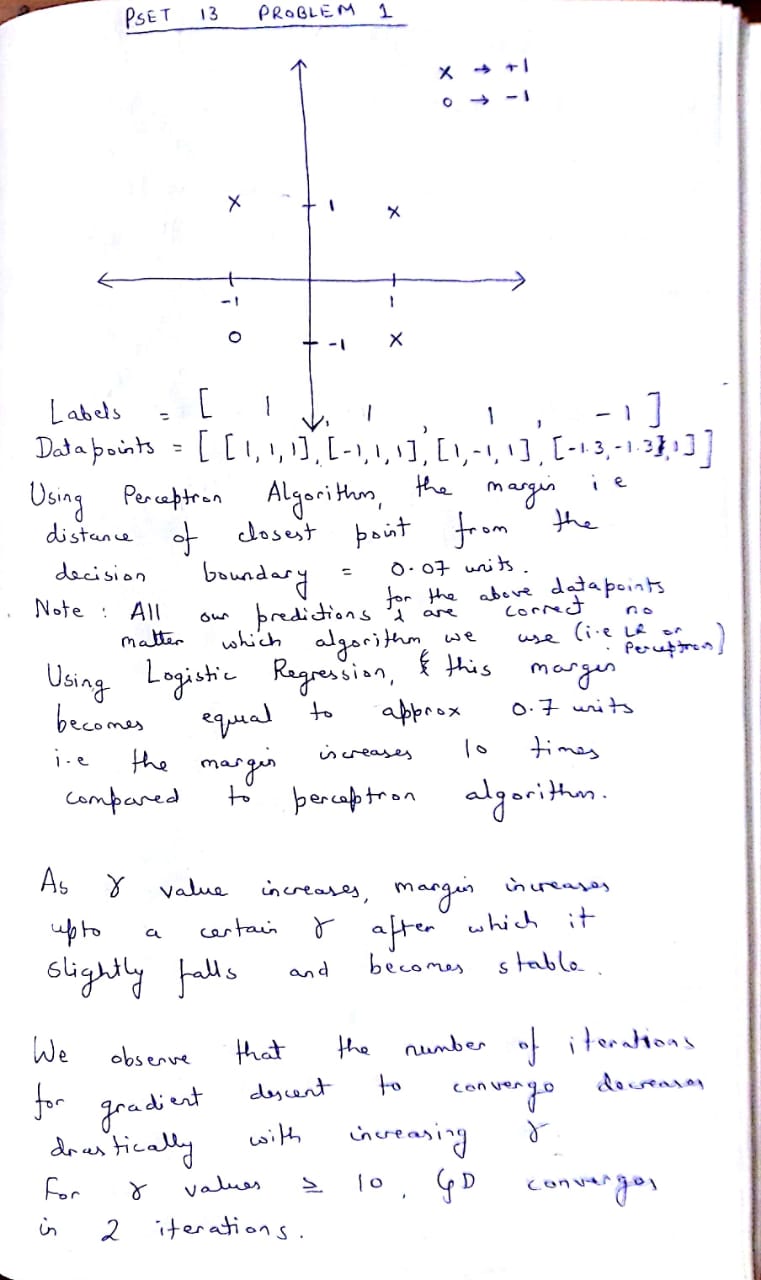 PSET 13 PROBLEM 1
x → +1
o → -1
x 1 x
-1 1
o -1 x
Labels = [ 1 , 1 , 1 , -1 ]
Data points = [ [1, 1, 1], [-1, 1, 1], [1, -1, 1], [-1.3, -1.3, 1] ]
Using Perceptron Algorithm, the margin i e
distance of closest point from the
decision boundary = 0.07 units.
for the above datapoints
Note : All our predictions are correct no
matter which algorithm we use (i.e LR or Perceptron)
Using Logistic Regression, this margin
becomes equal to approx 0.7 units
i.e the margin increases 10 times
compared to perceptron algorithm.
As γ value increases, margin increases
upto a certain γ after which it
slightly falls and becomes stable.
We observe that the number of iterations
for gradient descent to converge decreases
drastically with increasing γ
For γ values ≥ 10, GD converges
in 2 iterations.